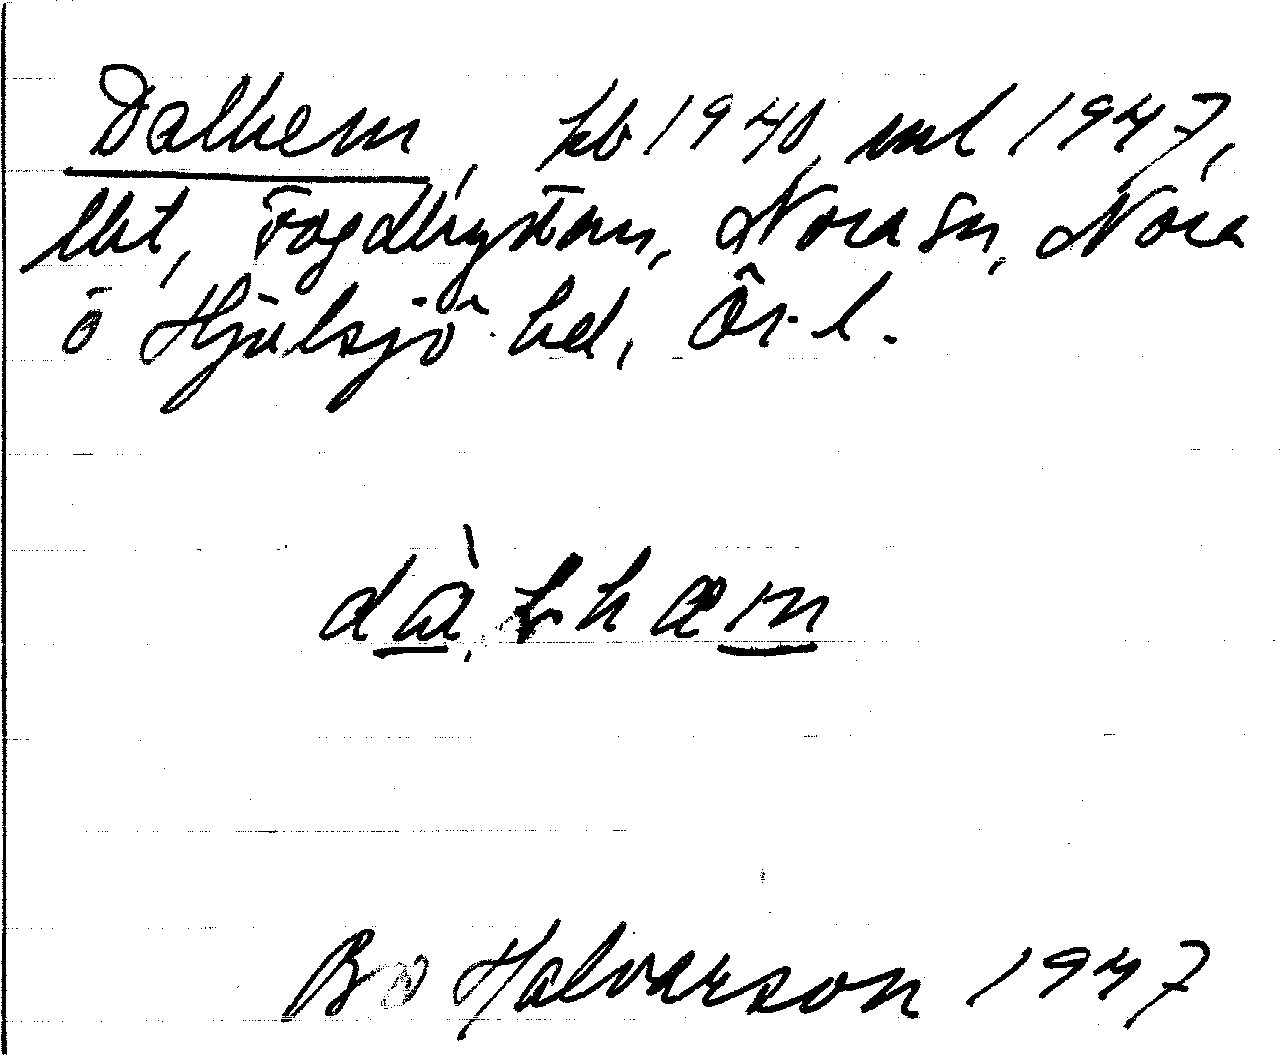 Dalhem, kb 1940, ml 1947,
lht, Fogdhyttan, Nora sn, Nora
o Hjulsjö hd, Ör. l.
dà,lhæm
Bo Halvarson 1947